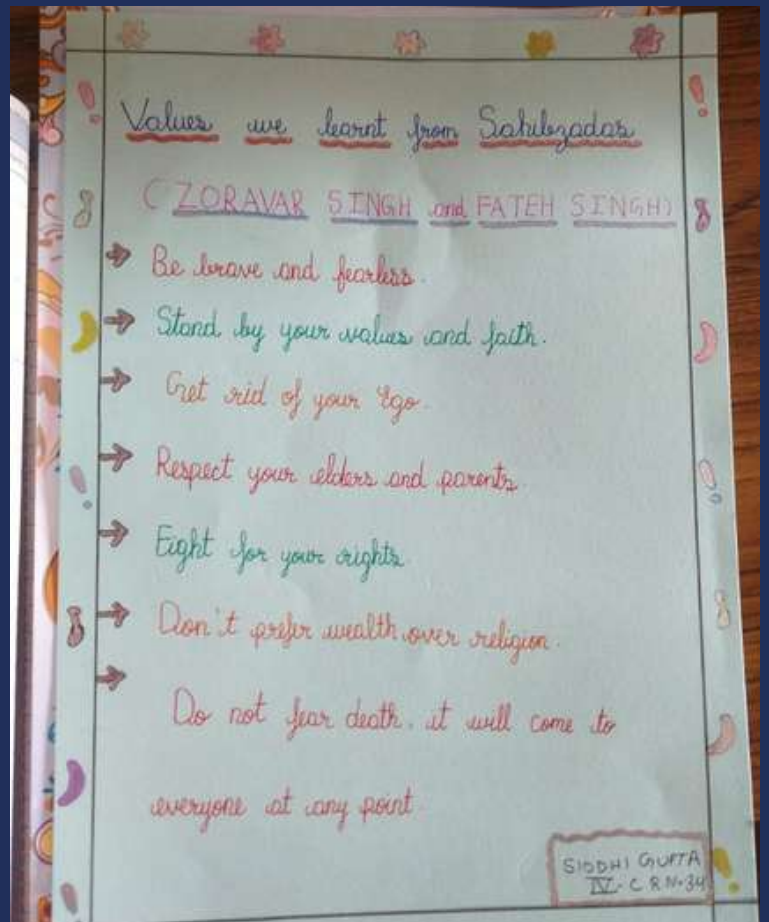 Values we learnt from Sahibzadas
(ZORAVAR SINGH and FATEH SINGH)
Be brave and fearless.
Stand by your values and faith.
Get rid of your Ego.
Respect your elders and parents.
Fight for your rights.
Don't prefer wealth over religion.
Do not fear death, it will come to
everyone at any point.
SIDDHI GUPTA
IV-C R.N-34